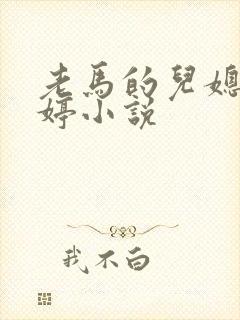 老馬的兒媳
婷小説
我不白